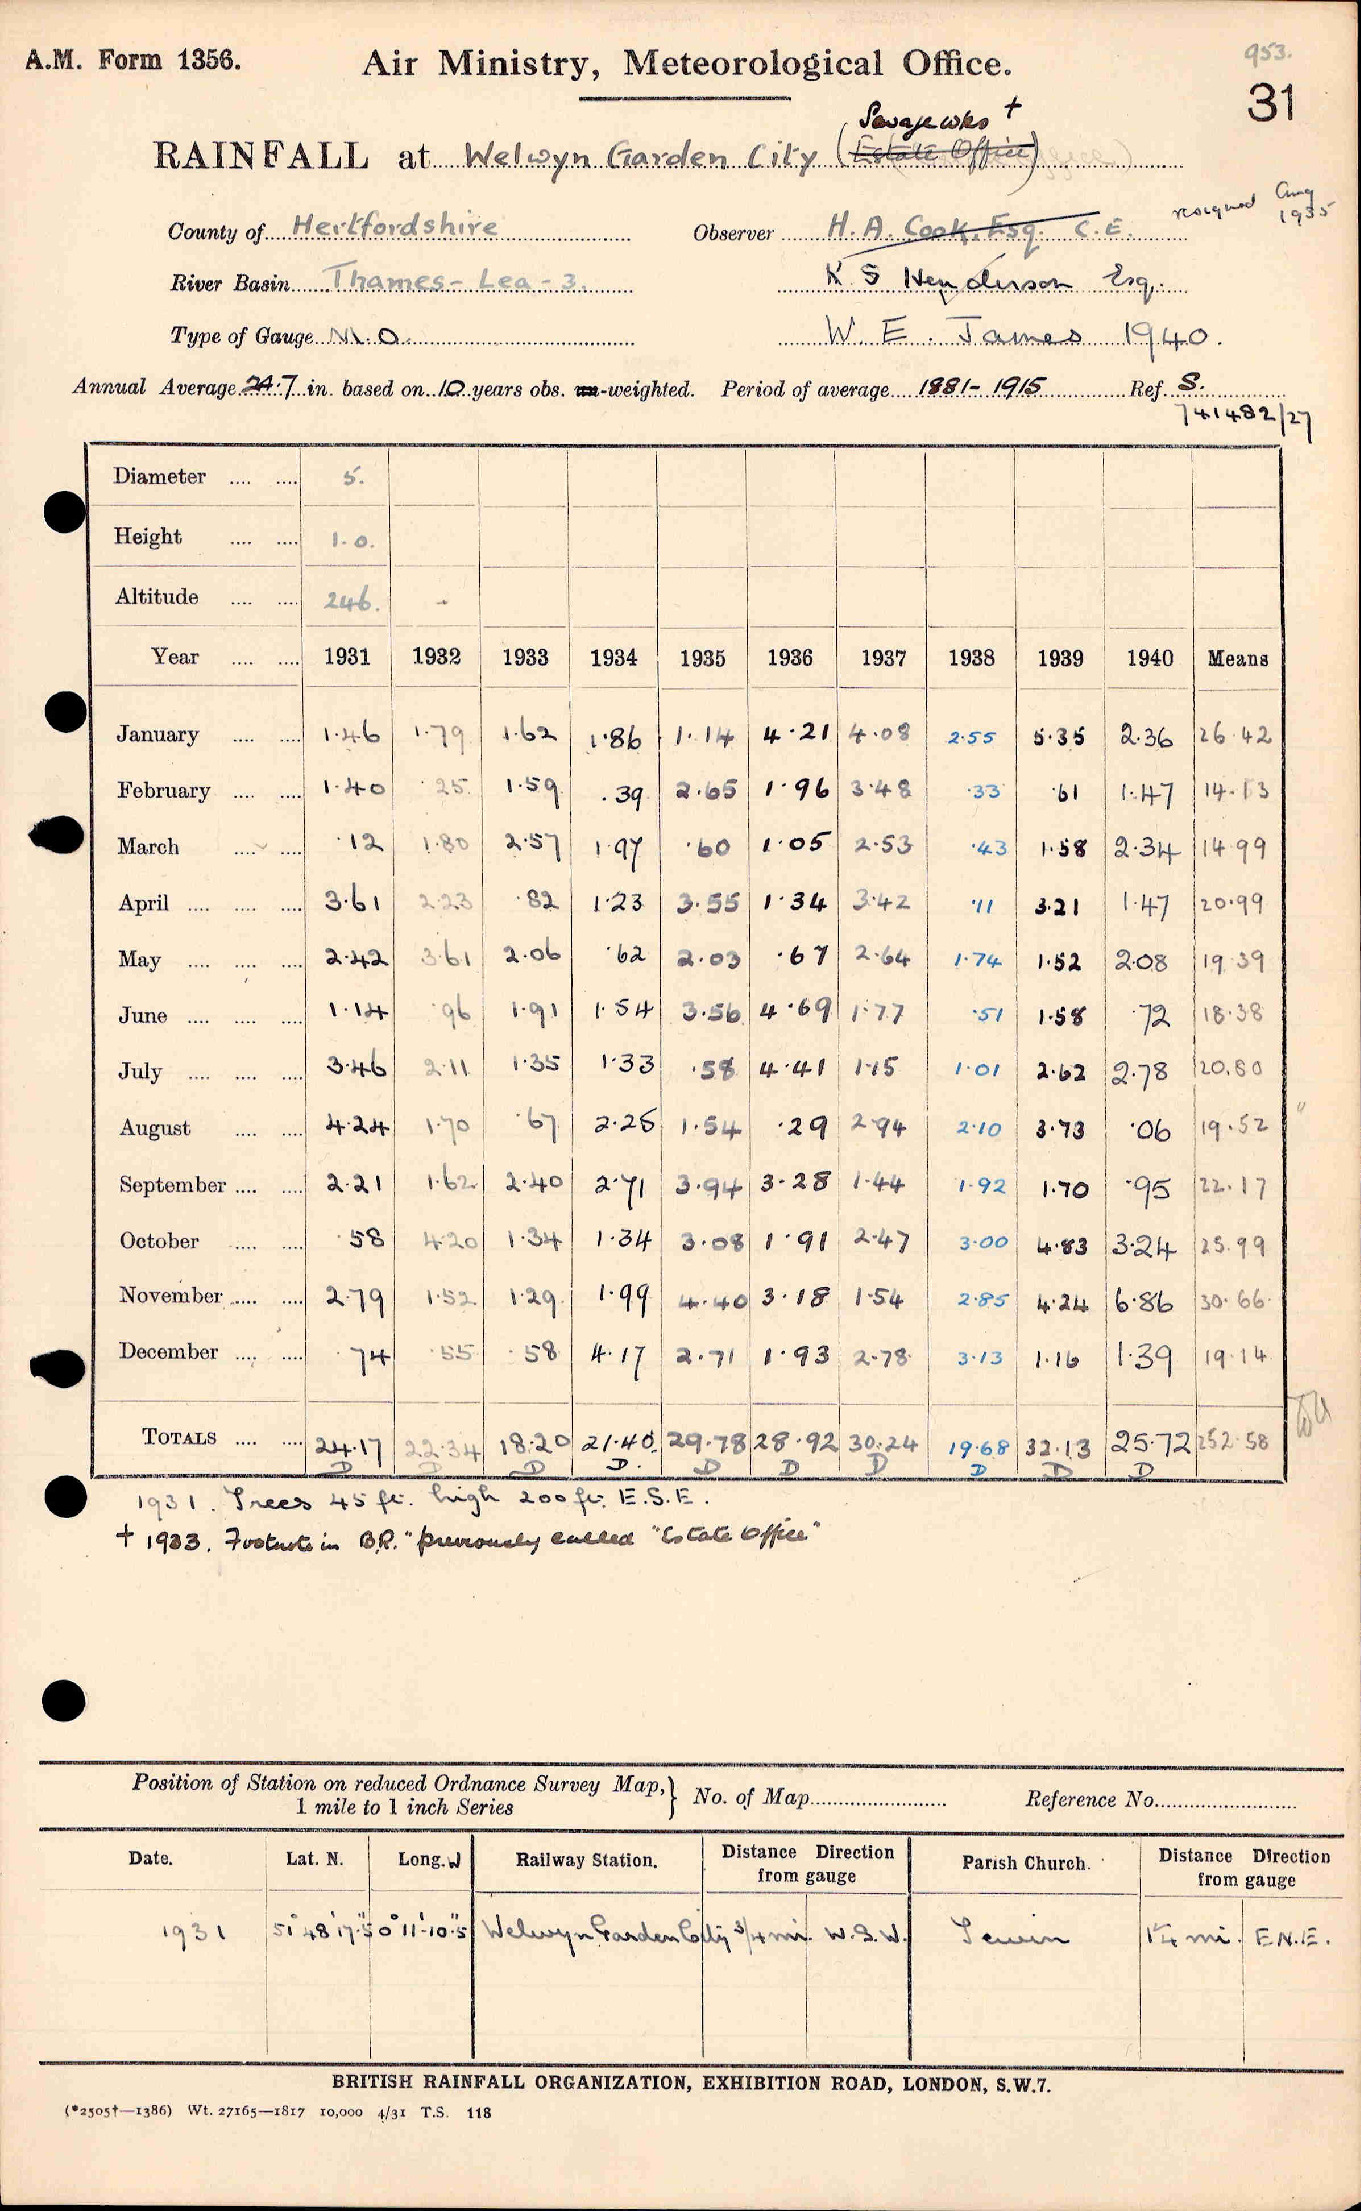 A.M. Form 1356.
Air Ministry, Meteorological Office.
953.
31
Sewage Wks +
RAINFALL at Welwyn Garden City (Estate Office)
County of Hertfordshire Observer H. A. Cook, Esq. C.E. resigned Aug 1935
River Basin Thames - Lea - 3. K S Henderson Esq.
Type of Gauge M.O. W. E. James 1940.
Annual Average 24.7 in. based on 10 years obs. un-weighted. Period of average 1881-1915 Ref. S.
741482/27
Diameter .... .... 5.
Height .... .... 1.0.
Altitude .... .... 246. -
Year .... .... 1931 1932 1933 1934 1935 1936 1937 1938 1939 1940 Means
January .... .... 1.46 1.79 1.62 1.86 1.14 4.21 4.08 2.55 5.35 2.36 26.42
February .... .... 1.40 .25 1.59 .39 2.65 1.96 3.48 .33 .61 1.47 14.13
March .... .... .12 1.80 2.57 1.97 .60 1.05 2.53 .43 1.58 2.34 14.99
April .... .... .... 3.61 2.23 .82 1.23 3.55 1.34 3.42 .11 3.21 1.47 20.99
May .... .... .... 2.42 3.61 2.06 .62 2.03 .67 2.64 1.74 1.52 2.08 19.39
June .... .... .... 1.14 .96 1.91 1.54 3.56 4.69 1.77 .51 1.58 .72 18.38
July .... .... .... 3.46 2.11 1.35 1.33 .58 4.41 1.15 1.01 2.62 2.78 20.80
August .... .... 4.24 1.70 .67 2.25 1.54 .29 2.94 2.10 3.73 .06 19.52
September .... .... 2.21 1.62 2.40 2.71 3.94 3.28 1.44 1.92 1.70 .95 22.17
October .... .... .58 4.20 1.34 1.34 3.08 1.91 2.47 3.00 4.83 3.24 25.99
November .... .... 2.79 1.52 1.29 1.99 4.40 3.18 1.54 2.85 4.24 6.86 30.66
December .... .... .74 .55 .58 4.17 2.71 1.93 2.78 3.13 1.16 1.39 19.14
TOTALS .... .... 24.17 22.34 18.20 21.40 29.78 28.92 30.24 19.68 32.13 25.72 252.58
D D D D. D D D D D D
1931. Trees 45 ft. high 200 ft. E.S.E.
+ 1933. Footnote in B.R. "previously called "Estate Office"
Position of Station on reduced Ordnance Survey Map,} No. of Map Reference No.
1 mile to 1 inch Series
Date. Lat. N. Long. W Railway Station. Distance Direction from gauge Parish Church. Distance Direction from gauge
1931 51° 48' 17".5 0° 11' 10".5 Welwyn Garden City 3/4 mi. W.S.W. Tewin 1 1/4 mi. E.N.E.
BRITISH RAINFALL ORGANIZATION, EXHIBITION ROAD, LONDON, S.W.7.
(*2505†—1386) Wt. 27165—1817 10,000 4/31 T.S. 118